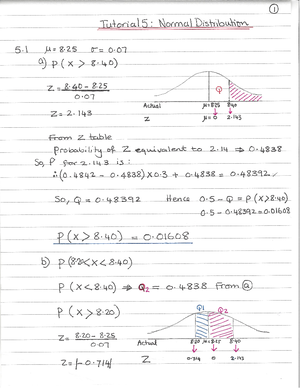 ①
Tutorial 5: Normal Distribution
5.1 μ = 8.25 σ = 0.07
a) P(X > 8.40)
Z = 8.40 - 8.25
0.07
Z = 2.143
Q
Actual μ=8.25 8.40
Z μ=0 2.143
From Z table
Probability of Z equivalent to 2.14 ⇒ 0.4838
So, P for 2.143 is:
∴(0.4842 - 0.4838)×0.3 + 0.4838 = 0.48392
So, Q = 0.48392 Hence 0.5 - Q = P(X>8.40)
0.5 - 0.48392 = 0.01608
P(X > 8.40) = 0.01608
b) P(8.20<X<8.40)
P(X<8.40) ⇒ Q2 = 0.4838 From ⓐ
P(X > 8.20)
Q1 Q2
Z = 8.20 - 8.25
0.07
Actual 8.20 μ=8.25 8.40
Z = |-0.714|
Z 0.714 0 2.143